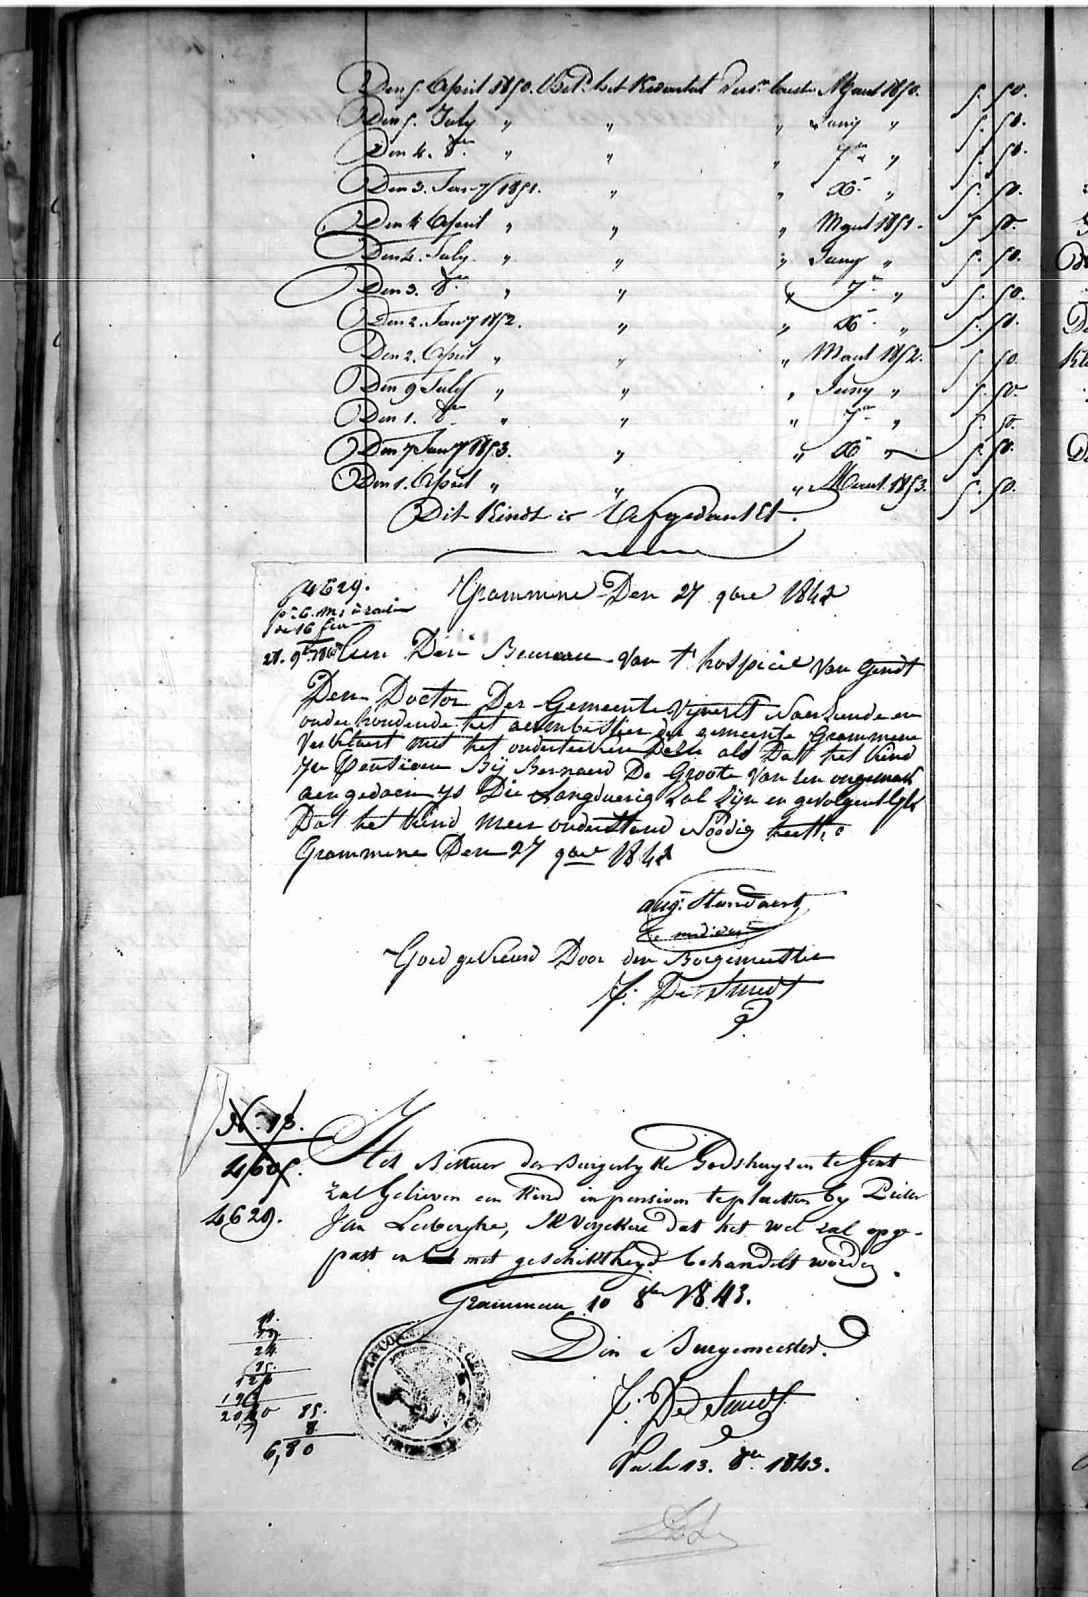 Den 5. April 1850. Bet. het Kwartal vers. laeste Maert 1850. 5. 50.
Den 5. July " " " Juny " 5. 50.
Den 4. 8er " " " 7er " 5. 50.
Den 3. Janry 1851. " " Xr " 5. 50.
Den 4 April " " " Maert 1851. 5. 50.
Den 4. July. " " " Juny " 5. 50.
Den 3. 8er " " " 7er " 5. 50.
Den 2. Janry 1852. " " Xr " 5. 50.
Den 2. April " " " Maert 1852. 5. 50.
Den 9 July " " " Juny " 5. 50.
Den 1. 8er " " " 7er " 5. 50.
Den 7 Janry 1853. " " Xr " 5. 50.
Den 1. April " " " Maert 1853. 5. 50.
Dit Kindt is Afgedankt.
4629.
Grammene Den 27 9bre 1842
Aen Den Bureau van t' hospice van Gendt
Den Doctor Der Gemeente Vynckt Naerzende en
onderhoudende het aermbestier der gemeente Grammene
Verklaert met het onderteeken deze als Dat het kind
in Pentioen Bij Bernaerd De Groote van een ongemak
aengedaen ys Die Langduerig zal zijn en gevolgentlyk
Dat het kind meer onderstand Noodig heeft.
Grammene Den 27 9bre 1842
Aug. Standaert
Goed gekeurd Door den Borgemeester
De Smedt
N. 13.
4605.
4629.
Het Bestuer der Burgerlyke Godshuyzen te Gent
zal Gelieven een Kind in pensioen te plaetsen by Pieter
Jan Leberghe, Ik Verzekere dat het wel zal opge-
past en met geschiktheyd behandelt worden.
Grammene 10 8ber 1843.
Den Burgemeester.
De Smedt
Vu le 13. 8bre 1843.
24
120
2040 85.
8
6,80